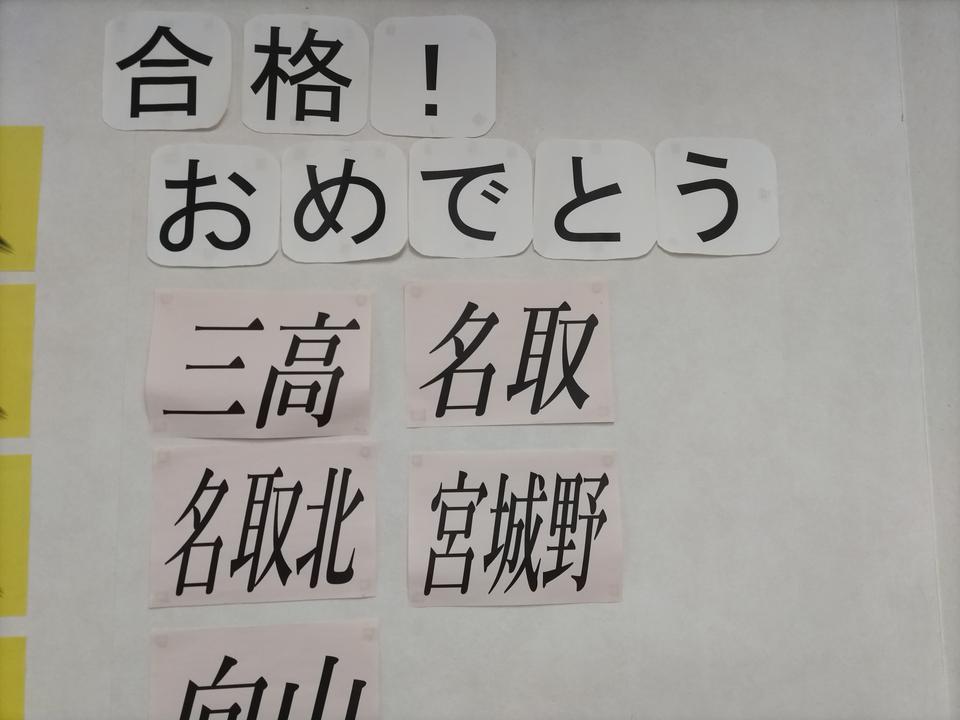 合格!
おめでとう
三高 名取
名取北 宮城野
向山